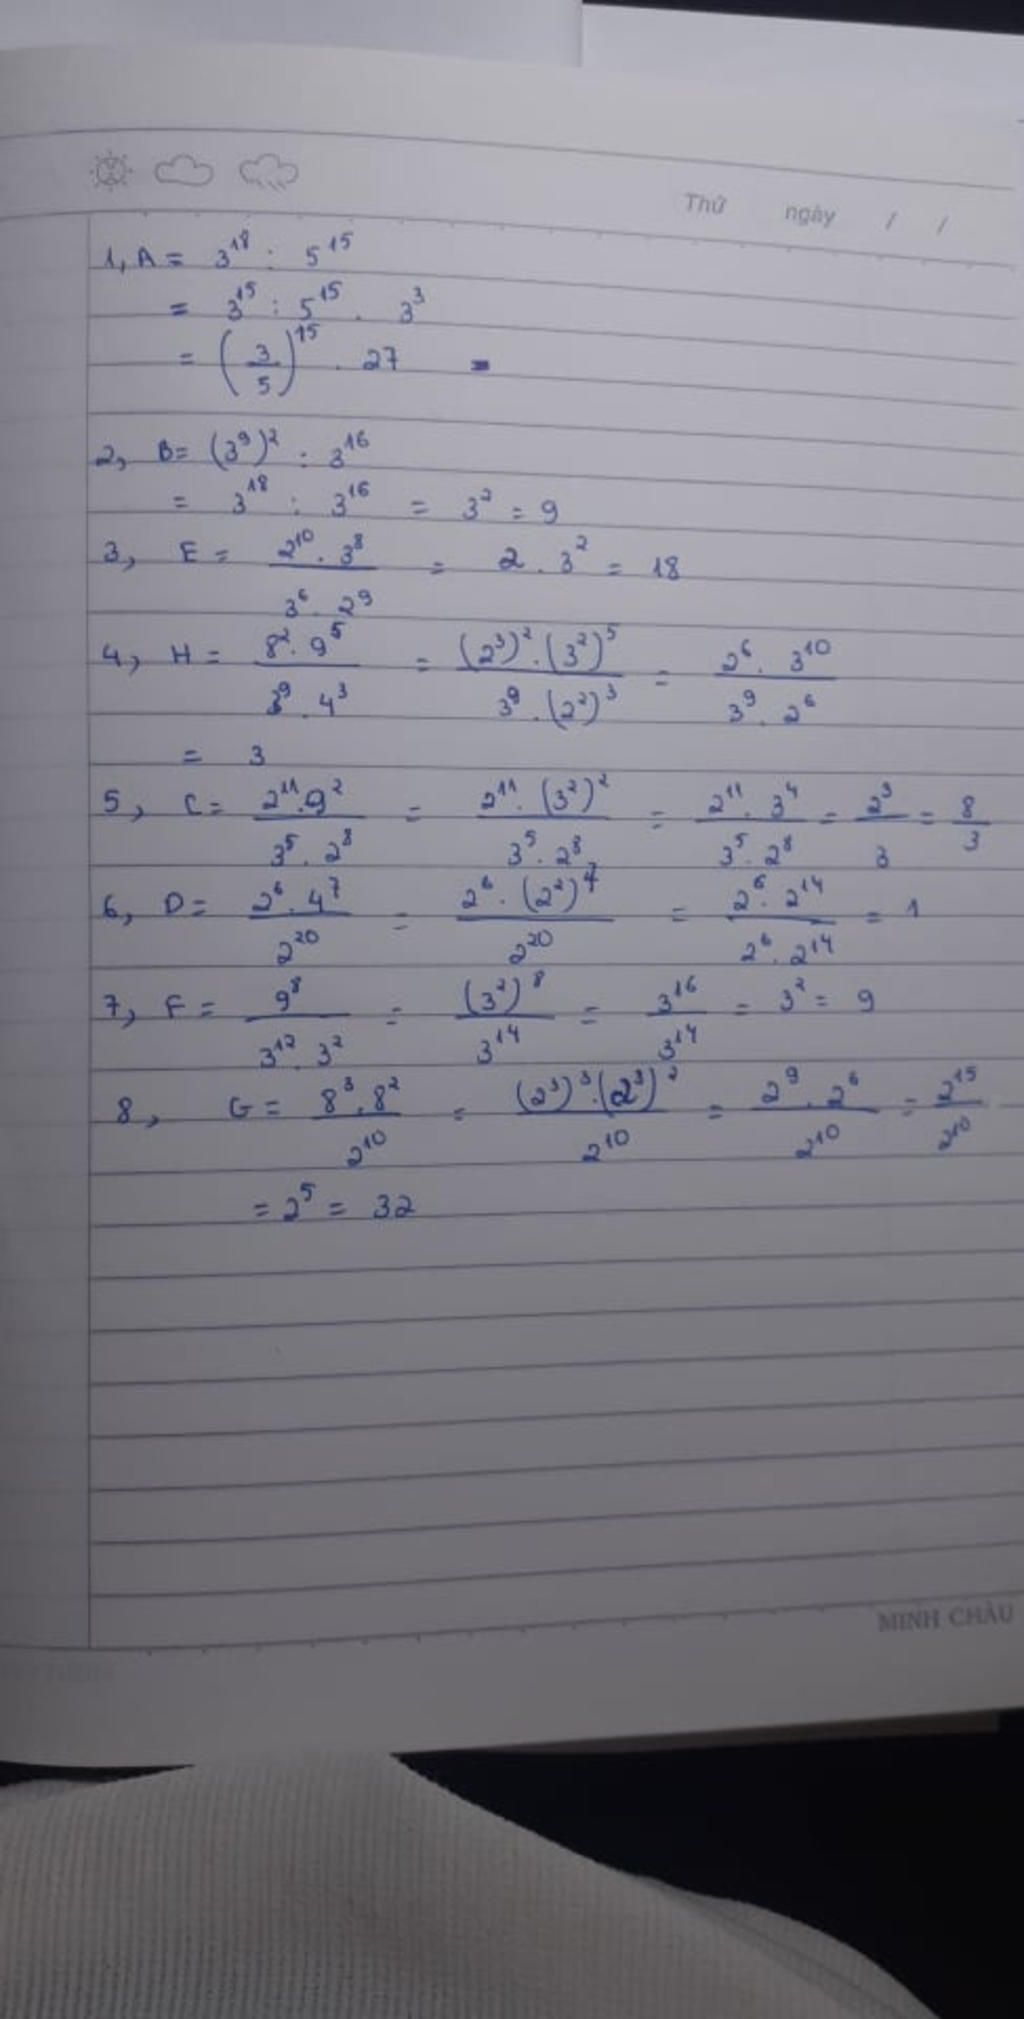 Thứ ngày / /
1, A = 3^18 : 5^15
= 3^15 : 5^15 . 3^3
= (3/5)^15 . 27 =
2, B = (3^9)^2 : 3^16
= 3^18 : 3^16 = 3^2 = 9
3, E = (2^10 . 3^8)/(3^6 . 2^9) = 2 . 3^2 = 18
4, H = (8^2 . 9^5)/(3^9 . 4^3) = ((2^3)^2 . (3^2)^5)/(3^9 . (2^2)^3) = (2^6 . 3^10)/(3^9 . 2^6)
= 3
5, C = (2^11 . 9^2)/(3^5 . 2^8) = (2^11 . (3^2)^2)/(3^5 . 2^8) = (2^11 . 3^4)/(3^5 . 2^8) = 2^3/3 = 8/3
6, D = (2^6 . 4^7)/2^20 = (2^6 . (2^2)^7)/2^20 = (2^6 . 2^14)/(2^6 . 2^14) = 1
7, F = 9^8/(3^12 . 3^2) = (3^2)^8/3^14 = 3^16/3^14 = 3^2 = 9
8, G = (8^3 . 8^2)/2^10 = ((2^3)^3 . (2^3)^2)/2^10 = (2^9 . 2^6)/2^10 = 2^15/2^10
= 2^5 = 32
MINH CHÂU